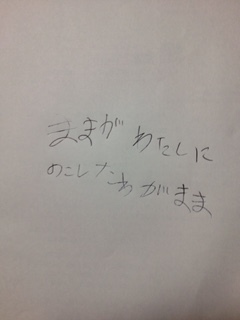 ままが わたしに
のこした わがまま